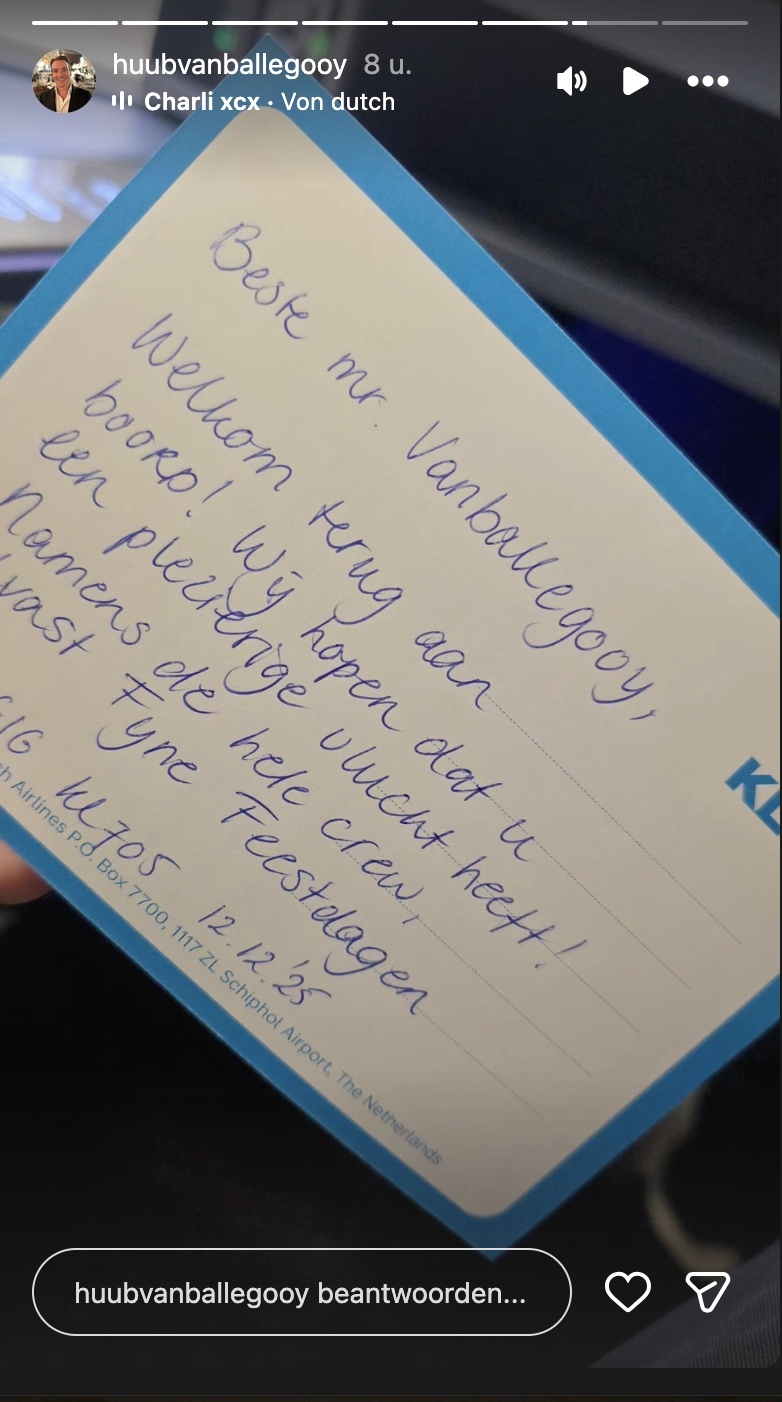 huubvanballegooy 8 u.
Charli xcx · Von dutch
Beste mr. Vanballegooy,
Welkom terug aan
boord! Wij hopen dat u
een plezierige vlucht heeft!
Namens de hele crew,
vast Fijne Feestdagen
KL705 12.12.'25
Airlines P.O. Box 7700, 1117 ZL Schiphol Airport, The Netherlands
KL
huubvanballegooy beantwoorden...